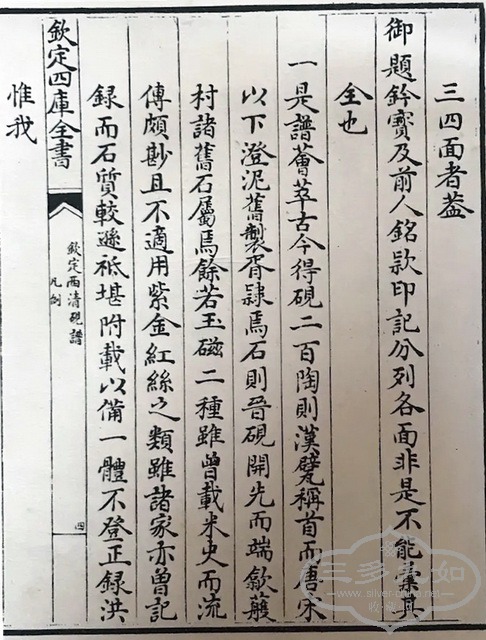 三四面者蓋
御題鈐寶及前人銘款印記分列各面非是不能
全也
一是譜薈萃古今得硯二百陶則漢甓稱首而唐宋
以下澄泥舊製胥隸焉石則晉硯開先而端歙蘄
村諸舊石屬焉餘若玉磁二種雖曾載米史而流
傳頗尠且不適用紫金紅絲之類雖諸家亦曾記
録而石質較遜袛堪附載以備一體不登正録洪
惟我
欽定四庫全書
欽定西清硯譜
凡例
四
三多
如
www.silver-phoenix.net
收藏